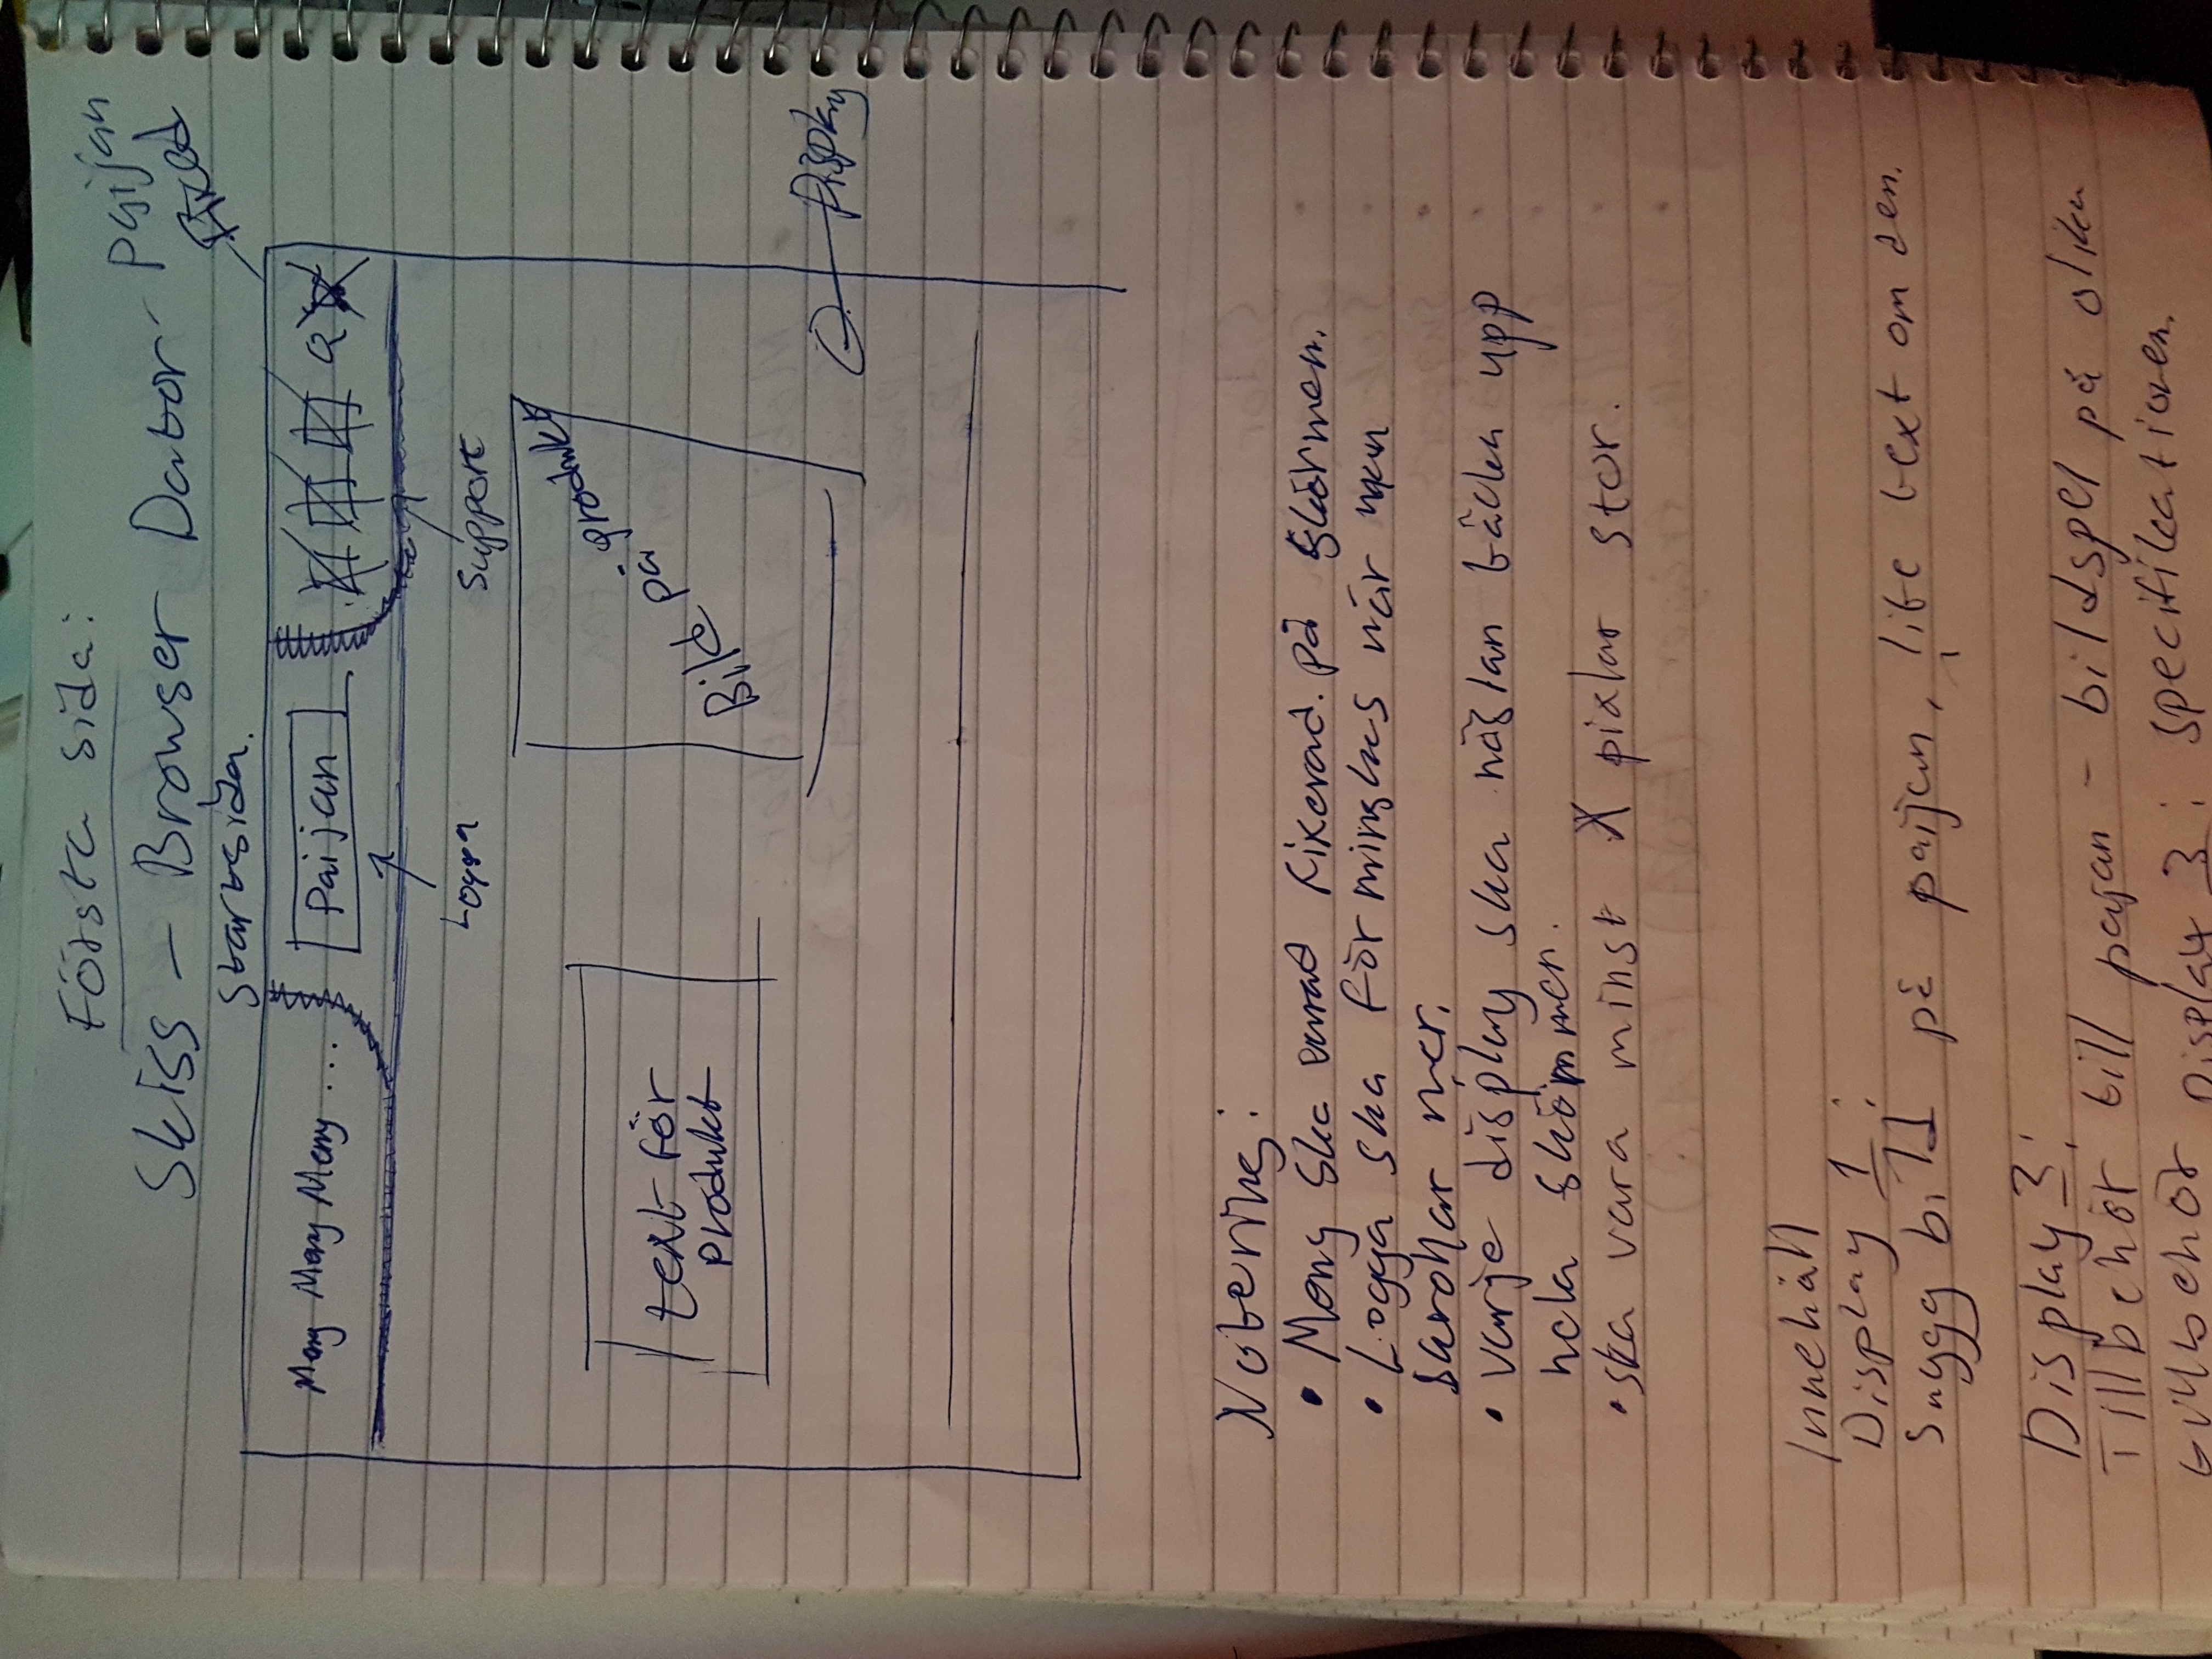 Första sida:
Skiss - Browser Dator - Paijan
Startsidan.
Fixed
Meny Meny Meny ... Paijan
Logga
Support
text för
produkt
Bild på produkt
Display
Notering:
• Meny ska vara fixerad. på skärmen.
• Logga ska förminskas när man
scrollar ner.
• varje display ska nästan täcka upp
hela skärmen.
• ska vara minst X pixlar stor.
Innehåll
Display 1:
Snygg bild på paijan, lite text om den.
Display 2:
Tillbehör till paijan - bildspel på olika
tillbehör Display 3: specifikationen.